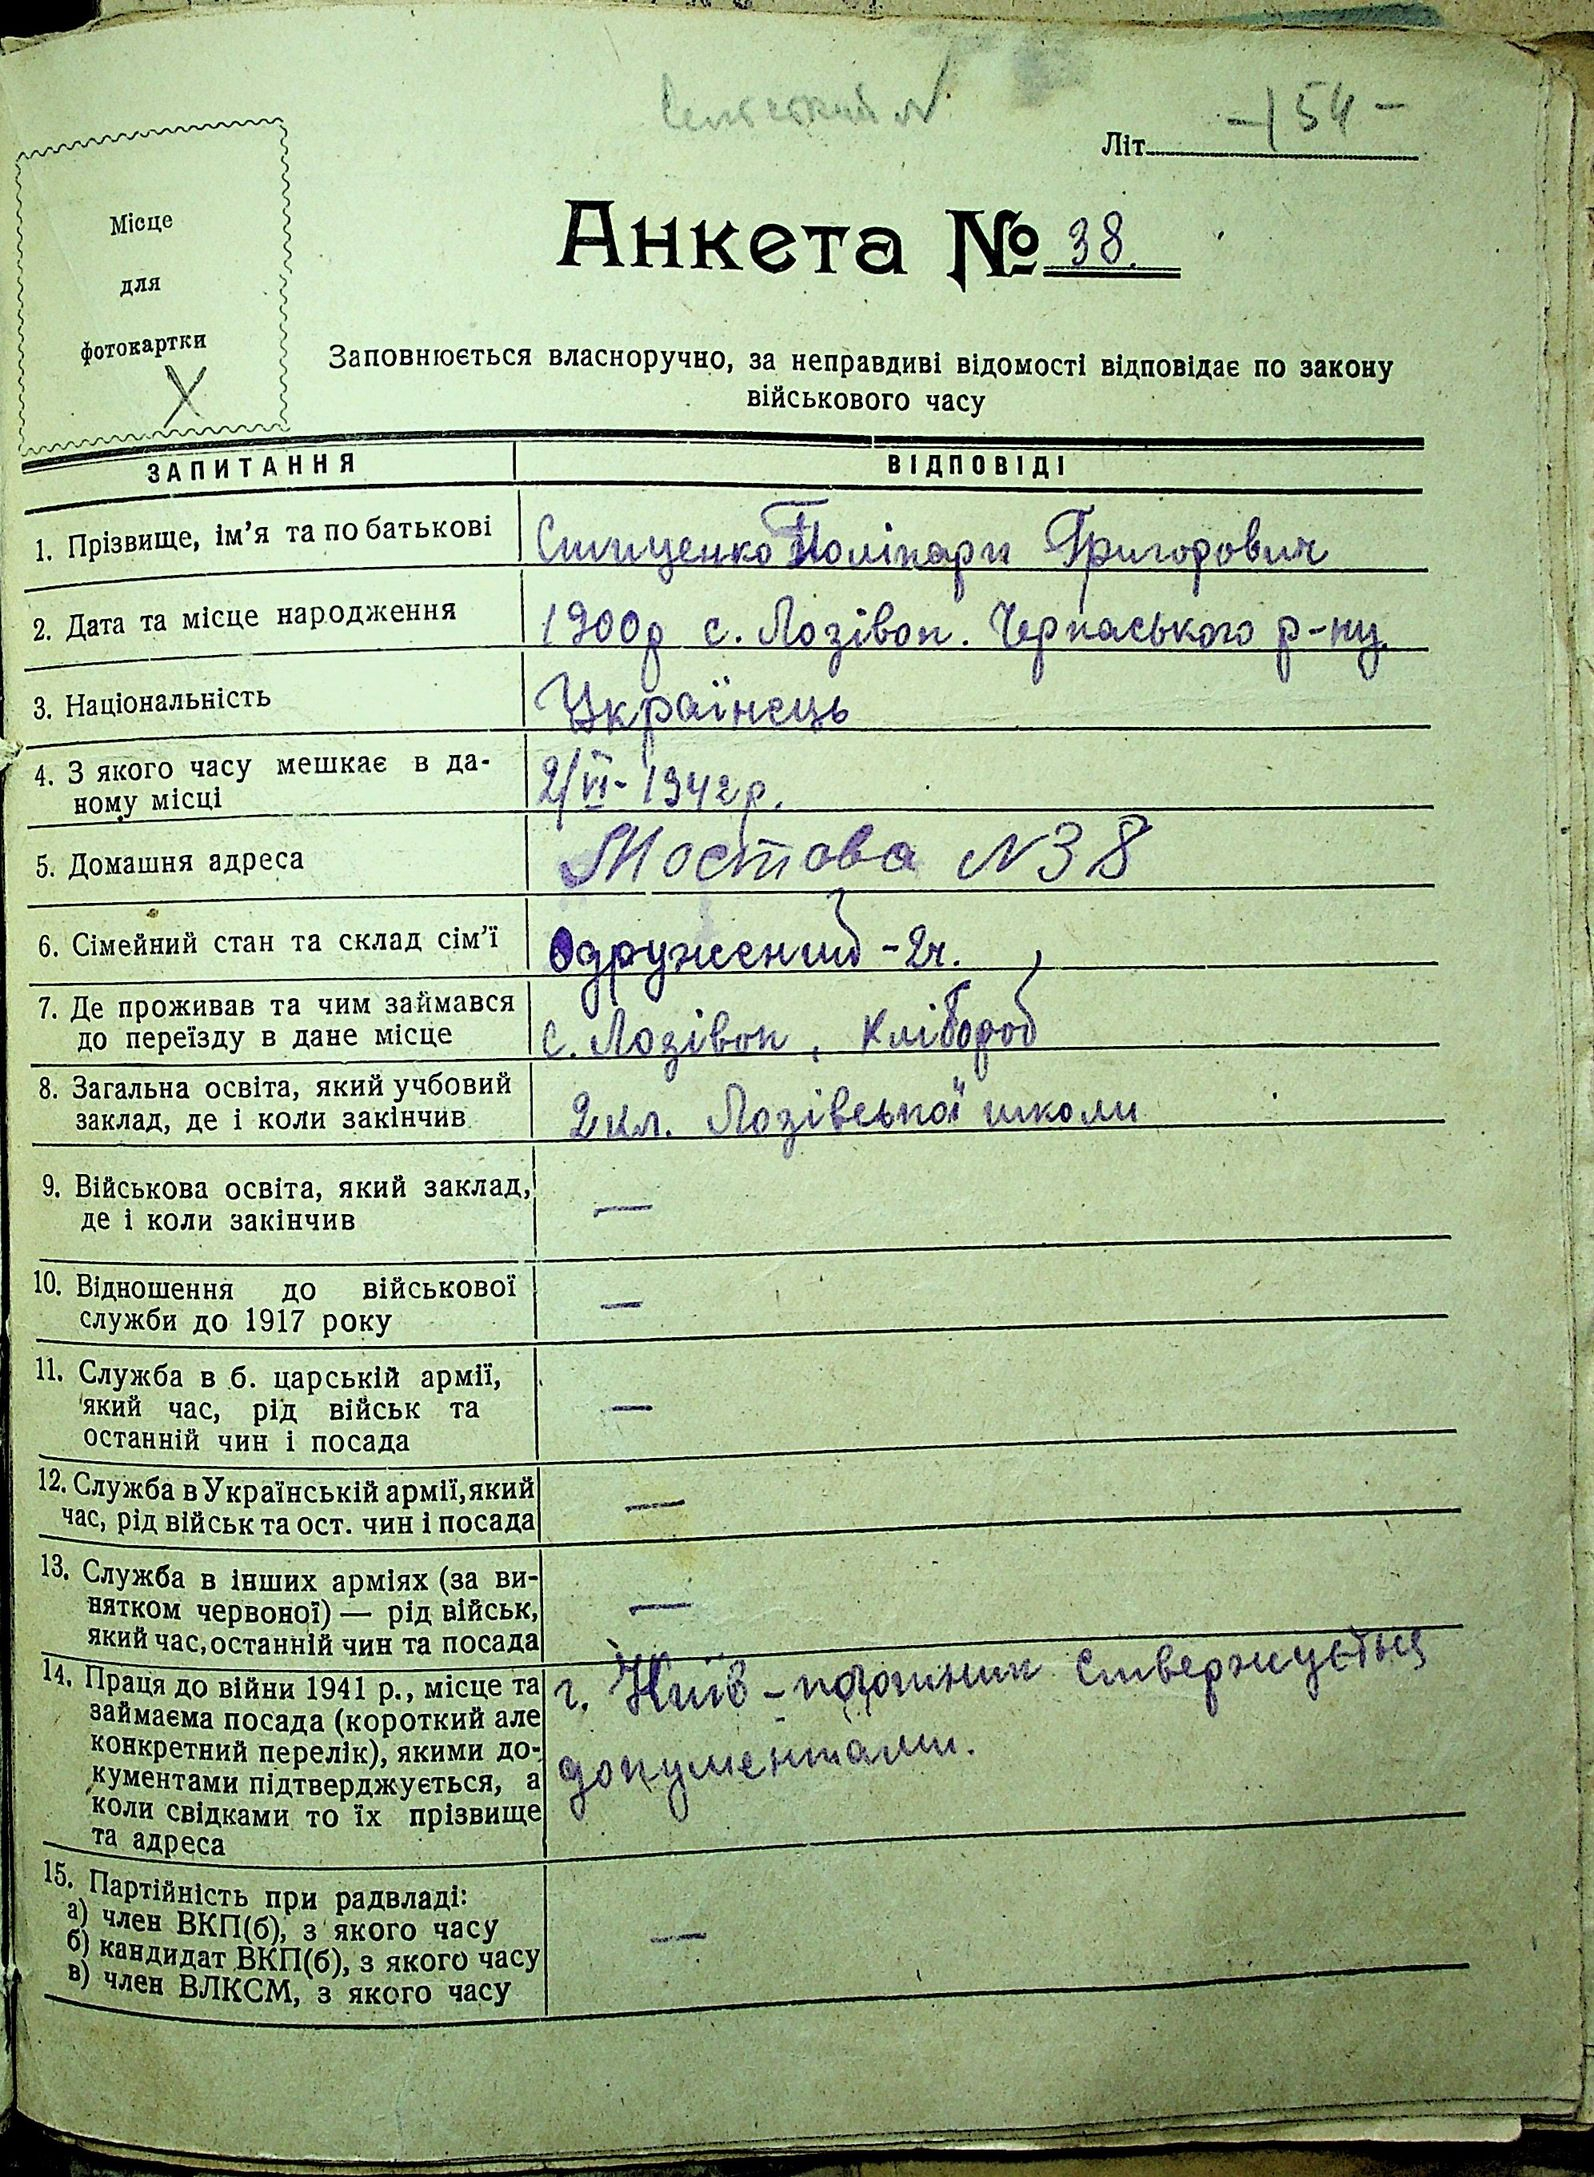 Літ. -154-
Місце
для
фотокартки
Анкета № 38.
Заповнюється власноручно, за неправдиві відомості відповідає по закону
військового часу
ЗАПИТАННЯ ВІДПОВІДІ
1. Прізвище, ім'я та по батькові Полікарп Григорович
2. Дата та місце народження 1900р с. Лозівок. Черкаського р-ну.
3. Національність Українець
4. З якого часу мешкає в да-
ному місці 2/VI-1942р.
5. Домашня адреса Мостова N38
6. Сімейний стан та склад сім'ї Одружений -2ч.
7. Де проживав та чим займався
до переїзду в дане місце с. Лозівок, хлібороб
8. Загальна освіта, який учбовий
заклад, де і коли закінчив 2кл. Лозівської школи
9. Військова освіта, який заклад,
де і коли закінчив —
10. Відношення до військової
служби до 1917 року —
11. Служба в б. царській армії,
який час, рід військ та
останній чин і посада —
12. Служба в Українській армії, який
час, рід військ та ост. чин і посада —
13. Служба в інших арміях (за ви-
нятком червоної) — рід військ,
який час, останній чин та посада —
14. Праця до війни 1941 р., місце та г. Київ - ствержується
займаєма посада (короткий але
конкретний перелік), якими до- документами.
кументами підтверджується, а
коли свідками то їх прізвище
та адреса
15. Партійність при радвладі:
а) член ВКП(б), з якого часу
б) кандидат ВКП(б), з якого часу —
в) член ВЛКСМ, з якого часу